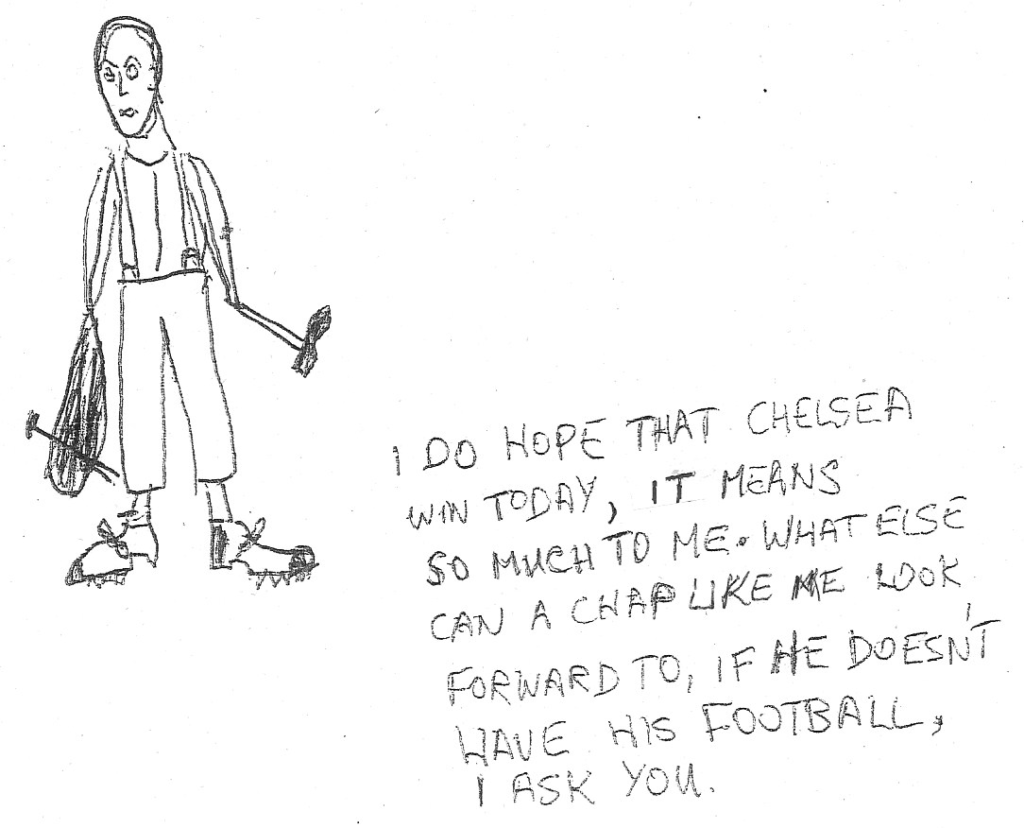 I DO HOPE THAT CHELSEA
WIN TODAY, IT MEANS
SO MUCH TO ME. WHAT ELSE
CAN A CHAP LIKE ME LOOK
FORWARD TO, IF HE DOESN'T
HAVE HIS FOOTBALL,
I ASK YOU.